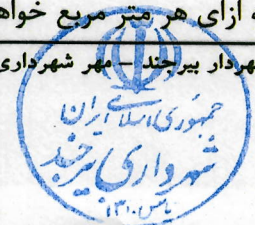 ازای هر متر مربع خواه
شهردار بیرجند – مهر شهرداری
جمهوری اسلامی ایران
شهرداری بیرجند
تاسیس ۱۳۱۰